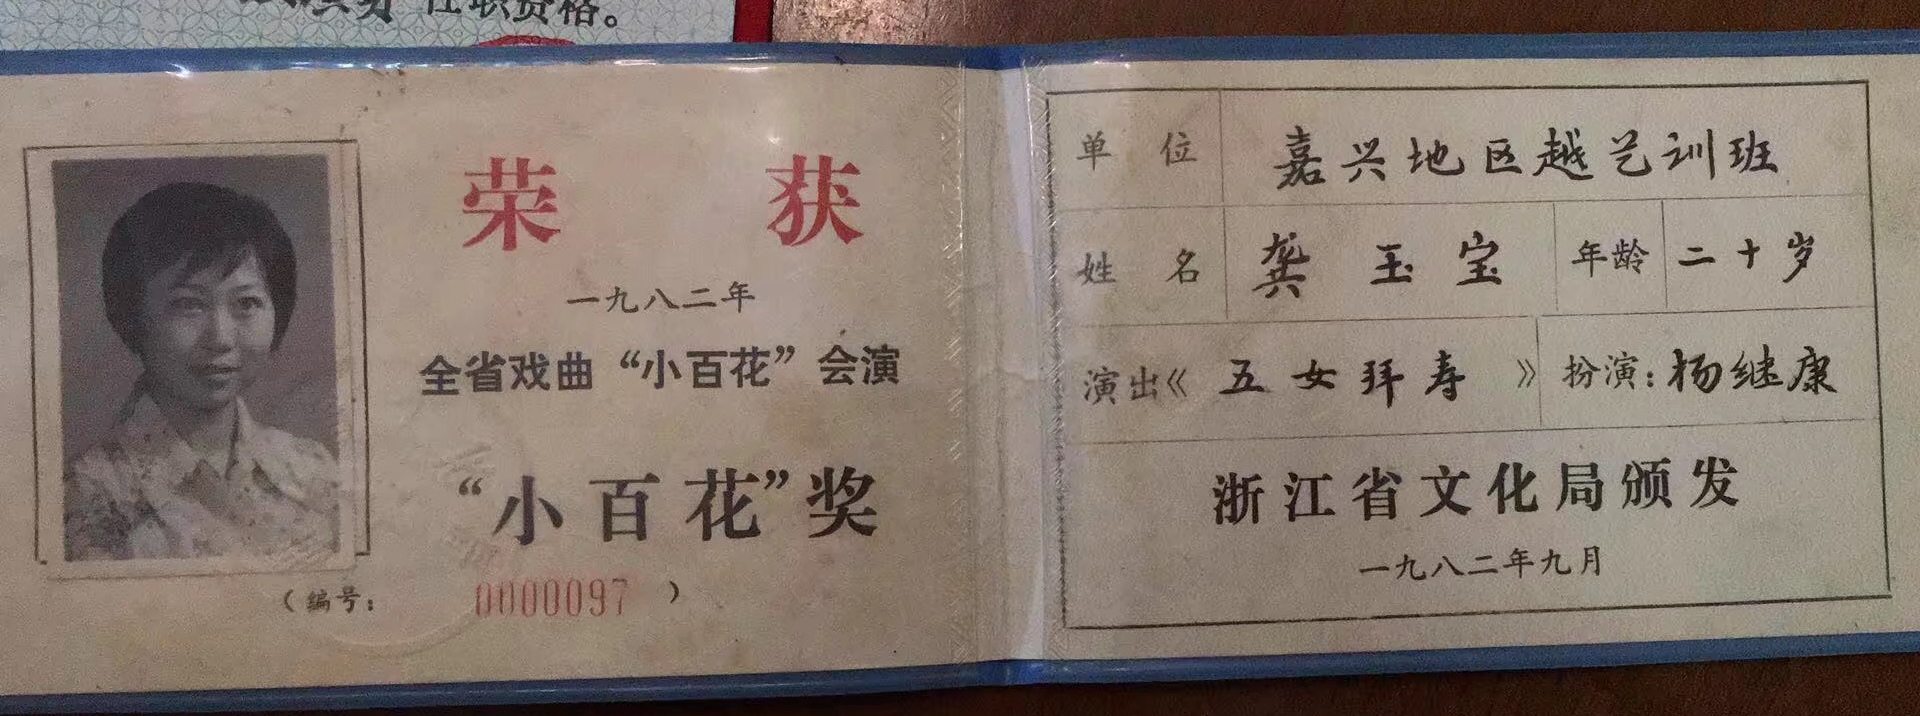 任职资格。
荣获
一九八二年
全省戏曲“小百花”会演
“小百花”奖
（编号：0000097）
单位 嘉兴地区越艺训班
姓名 龚玉宝 年龄 二十岁
演出《五女拜寿》 扮演：杨继康
浙江省文化局颁发
一九八二年九月